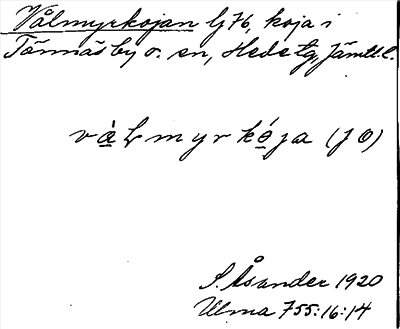 Vålmyrkojan lj 76, koja i
Tännäs by o. sn, Hede tg, Jämtl. l.
vàlmyrkója (JO)
S. Åsander 1920
Ulma 755:16:14